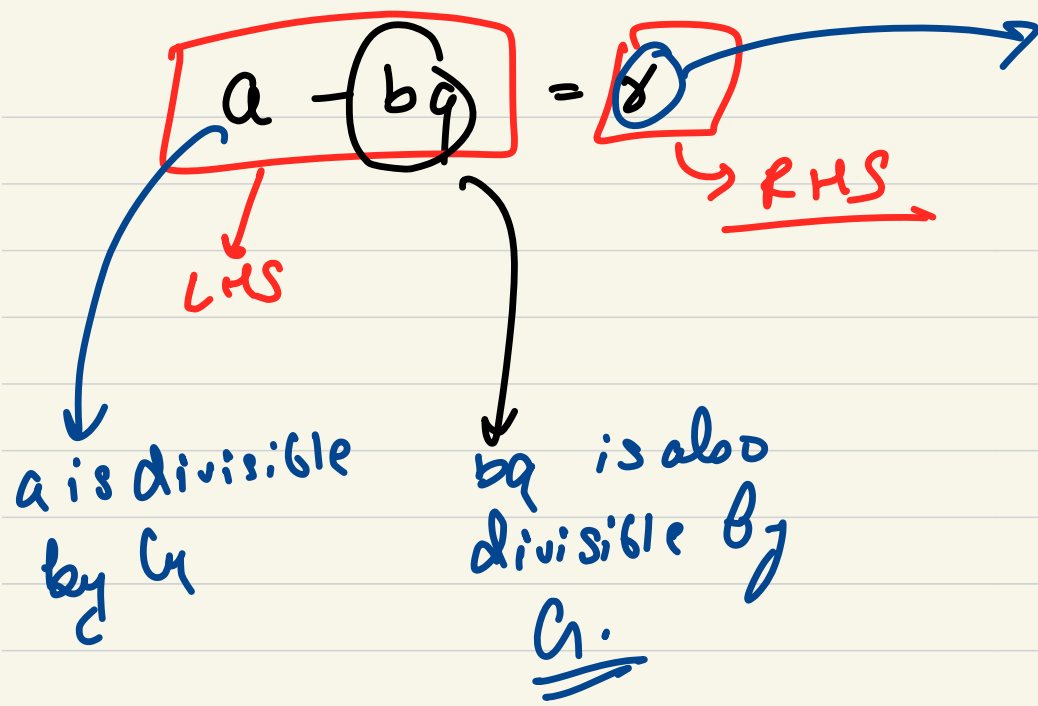 a - bq = r
RHS
LHS
a is divisible
by G
bq is also
divisible by
G.